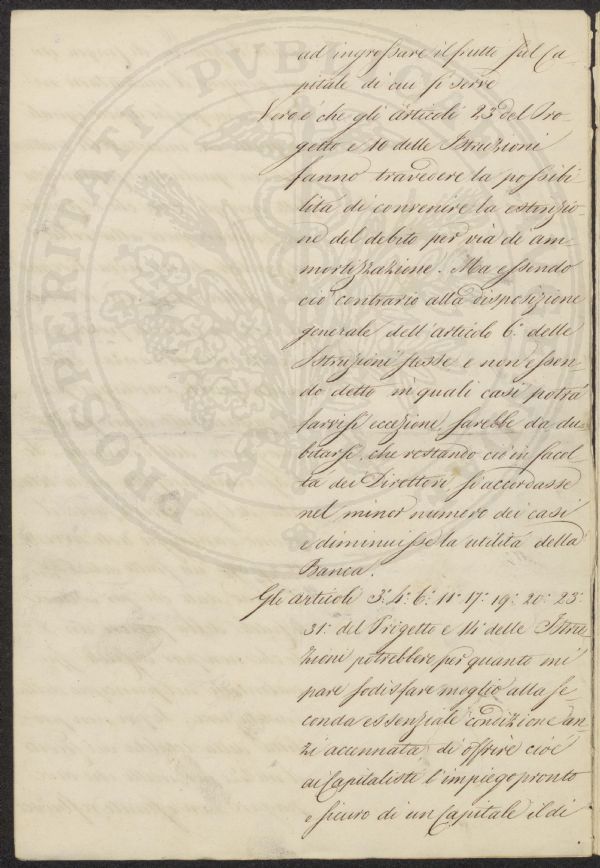 ad ingrossare il frutto sul Ca-
pitale di cui si serve
Vero é che gli articoli 23 del Pro-
getto e 10 delle Istruzioni
fanno travedere la possibi-
litá di convenire la estinzio-
ne del debito per via di am-
mortizzazione. Ma essendo
ció contrario alla disposizione
generale dell'articolo 6.º delle
Istruzioni stesse e non essen-
do detto in quali casi potrá
farvisi eccezione sarebbe da du-
bitarsi, che restando ció in facol-
ta dei Direttori si accordasse
nel minor numero dei casi
e diminuisse la utilitá della
Banca.
Gli articoli 3.º 4.º 6.º 11.º 17.º 19.º 20.º 23.º
31.º del Progetto e 14.º delle Istru-
zioni potrebbero per quanto mi
pare sodisfare meglio alla se-
conda essenziale condizione an-
zi accennata di offrire cioé
ai Capitalisti l'impiego pronto
e sicuro di un Capitale il di
PROSPERITATI PUBLICAE